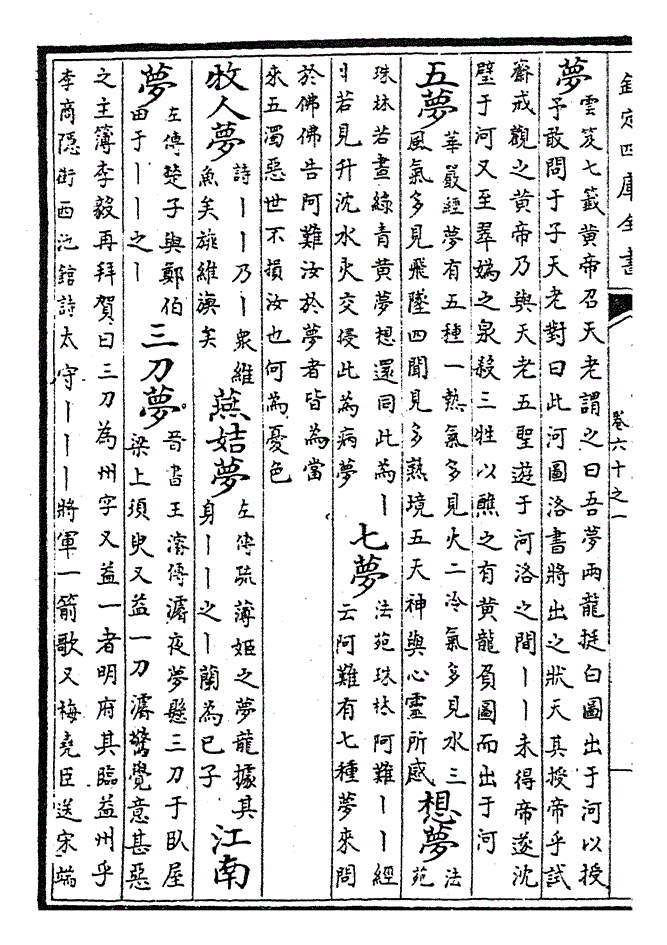 欽定四庫全書
卷六十之一
一
夢
雲笈七籖黄帝召天老謂之曰吾夢兩龍挺白圖出于河以授
予敢問于子天老對曰此河圖洛書將出之狀天其授帝乎試
齋戒觀之黄帝乃與天老五聖遊于河洛之間丨丨未得帝遂沈
璧于河又至翠媯之泉殺三牲以醮之有黄龍負圖而出于河
五夢
華嚴經夢有五種一熱氣多見火二冷氣多見水三
風氣多見飛墜四聞見多熟境五天神與心靈所感
想夢
法
苑
珠林若晝綠青黄夢想還同此為丨
丨若見升沈水火交侵此為病夢
七夢
法苑珠林阿難丨丨經
云阿難有七種夢來問
於佛佛告阿難汝於夢者皆為當
來五濁惡世不損汝也何為憂色
牧人夢
詩丨丨乃丨衆維
魚矣旐維旟矣
燕姞夢
左傳疏薄姬之夢龍據其
身丨丨之丨蘭為已子
江南
夢
左傳楚子與鄭伯
田于丨丨之丨
三刀夢
晉書王濬傳濬夜夢懸三刀于臥屋
梁上須臾又益一刀濬驚覺意甚惡
之主簿李毅再拜賀曰三刀為州字又益一者明府其臨益州乎
李商隱街西池館詩太守丨丨丨將軍一箭歌又梅堯臣送宋端